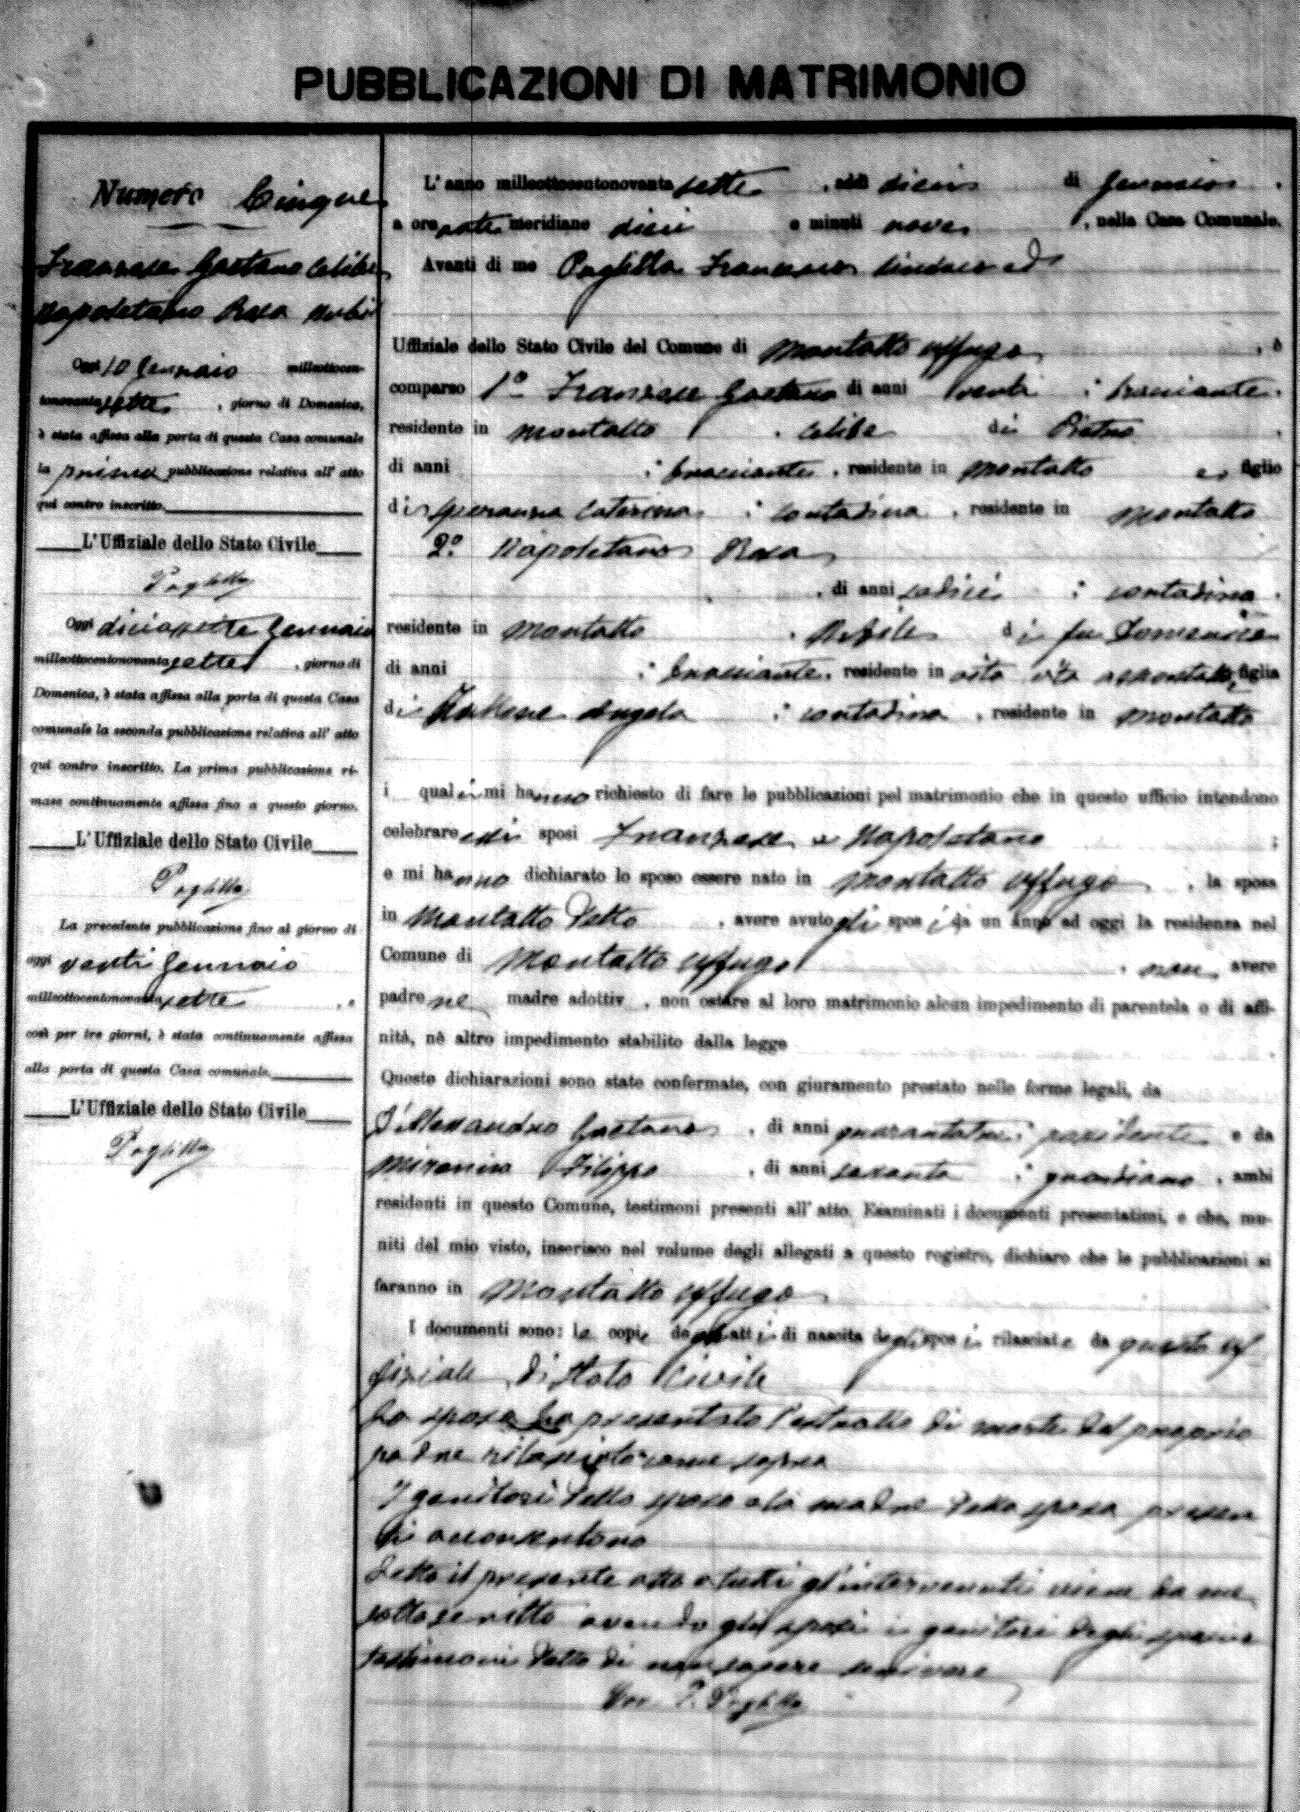 PUBBLICAZIONI DI MATRIMONIO
Numero Cinque
Franzese Gaetano celibe
Napoletano Rosa nubile
Oggi 10 Gennaio milleottocen-
tonovantasette, giorno di Domenica,
è stata affissa alla porta di questa Casa comunale
la prima pubblicazione relativa all' atto
qui contro inscritto.
L'Uffiziale dello Stato Civile
Pugliella
Oggi diciassette Gennaio
milleottocentonovantasette, giorno di
Domenica, è stata affissa alla porta di questa Casa
comunale la seconda pubblicazione relativa all' atto
qui contro inscritto. La prima pubblicazione ri-
mase continuamente affissa fino a questo giorno.
L'Uffiziale dello Stato Civile
La precedente pubblicazione fino al giorno di
oggi venti Gennaio
milleottocentonovantasette, e
così per tre giorni, è stata continuamente affissa
alla porta di questa Casa comunale.
L'Uffiziale dello Stato Civile
L' anno milleottocentonovantasette, addì dieci di Gennaio.
a ore anti meridiane dieci e minuti nove, nella Casa Comunale.
Avanti di me Francesco Sindaco ed
Uffiziale dello Stato Civile del Comune di Montalto Uffugo, è
comparso 1º Franzese Gaetano di anni venti; bracciante.
residente in Montalto. celibe di Pietro
di anni ; bracciante, residente in Montalto e figlio
di Speranza Caterina; contadina, residente in Montalto
2º Napoletano Rosa
, di anni sedici; contadina.
residente in Montalto. Nubile di fu Domenico
di anni ; bracciante, residente in vita Montalto, figlia
di Angela; contadina, residente in Montalto
i quali mi hanno richiesto di fare le pubblicazioni pel matrimonio che in questo ufficio intendono
celebrare essi sposi Franzese e Napoletano;
e mi hanno dichiarato lo sposo essere nato in Montalto Uffugo, la sposa
in Montalto detto, avere avuto gli sposi da un anno ad oggi la residenza nel
Comune di Montalto Uffugo, non avere
padre nè madre adottiv , non ostare al loro matrimonio alcun impedimento di parentela o di affi-
nità, nè altro impedimento stabilito dalla legge
Queste dichiarazioni sono state confermate, con giuramento prestato nelle forme legali, da
D'Alessandro Gaetano, di anni quarantatre; possidente e da
Filippo, di anni sessanta; guardiano, ambi
residenti in questo Comune, testimoni presenti all' atto. Esaminati i documenti presentatimi, e che, mu-
niti del mio visto, inserisco nel volume degli allegati a questo registro, dichiaro che le pubblicazioni si
faranno in Montalto Uffugo
I documenti sono: le copie degli atti di nascita degli sposi rilasciate da questo uf
fiziale di Stato Civile
La sposa ha presentato l'estratto di morte del proprio
padre rilasciato come sopra
I genitori dello sposo e la madre della sposa presen
ti acconsentono
Letto il presente atto a tutti gl'intervenuti viene da me
sottoscritto avendo gli sposi i genitori degli sposi e
testimoni detto di non sapere scrivere